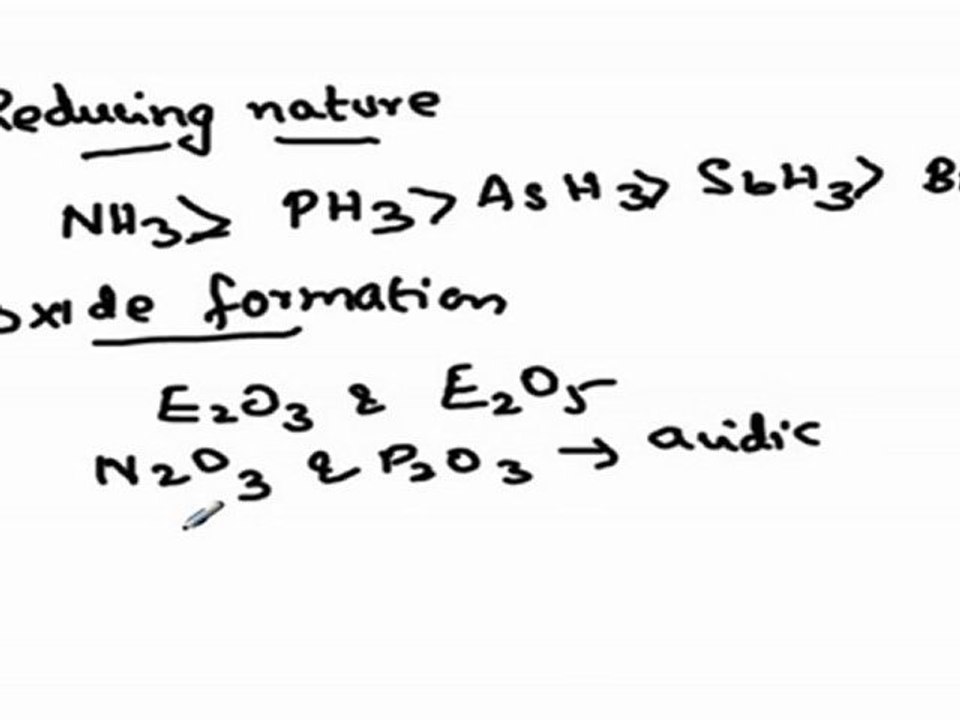 Reducing nature
NH3 > PH3 > AsH3 > SbH3 > Bi
oxide formation
E2O3 & E2O5
N2O3 & P2O3 → acidic